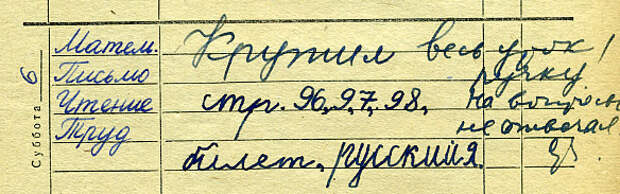 Суббота 6
Матем. Крутил весь урок!
Письмо ручку
Чтение стр. 96, 97, 98, На вопросы
Труд не отвечал
билет. русский я.